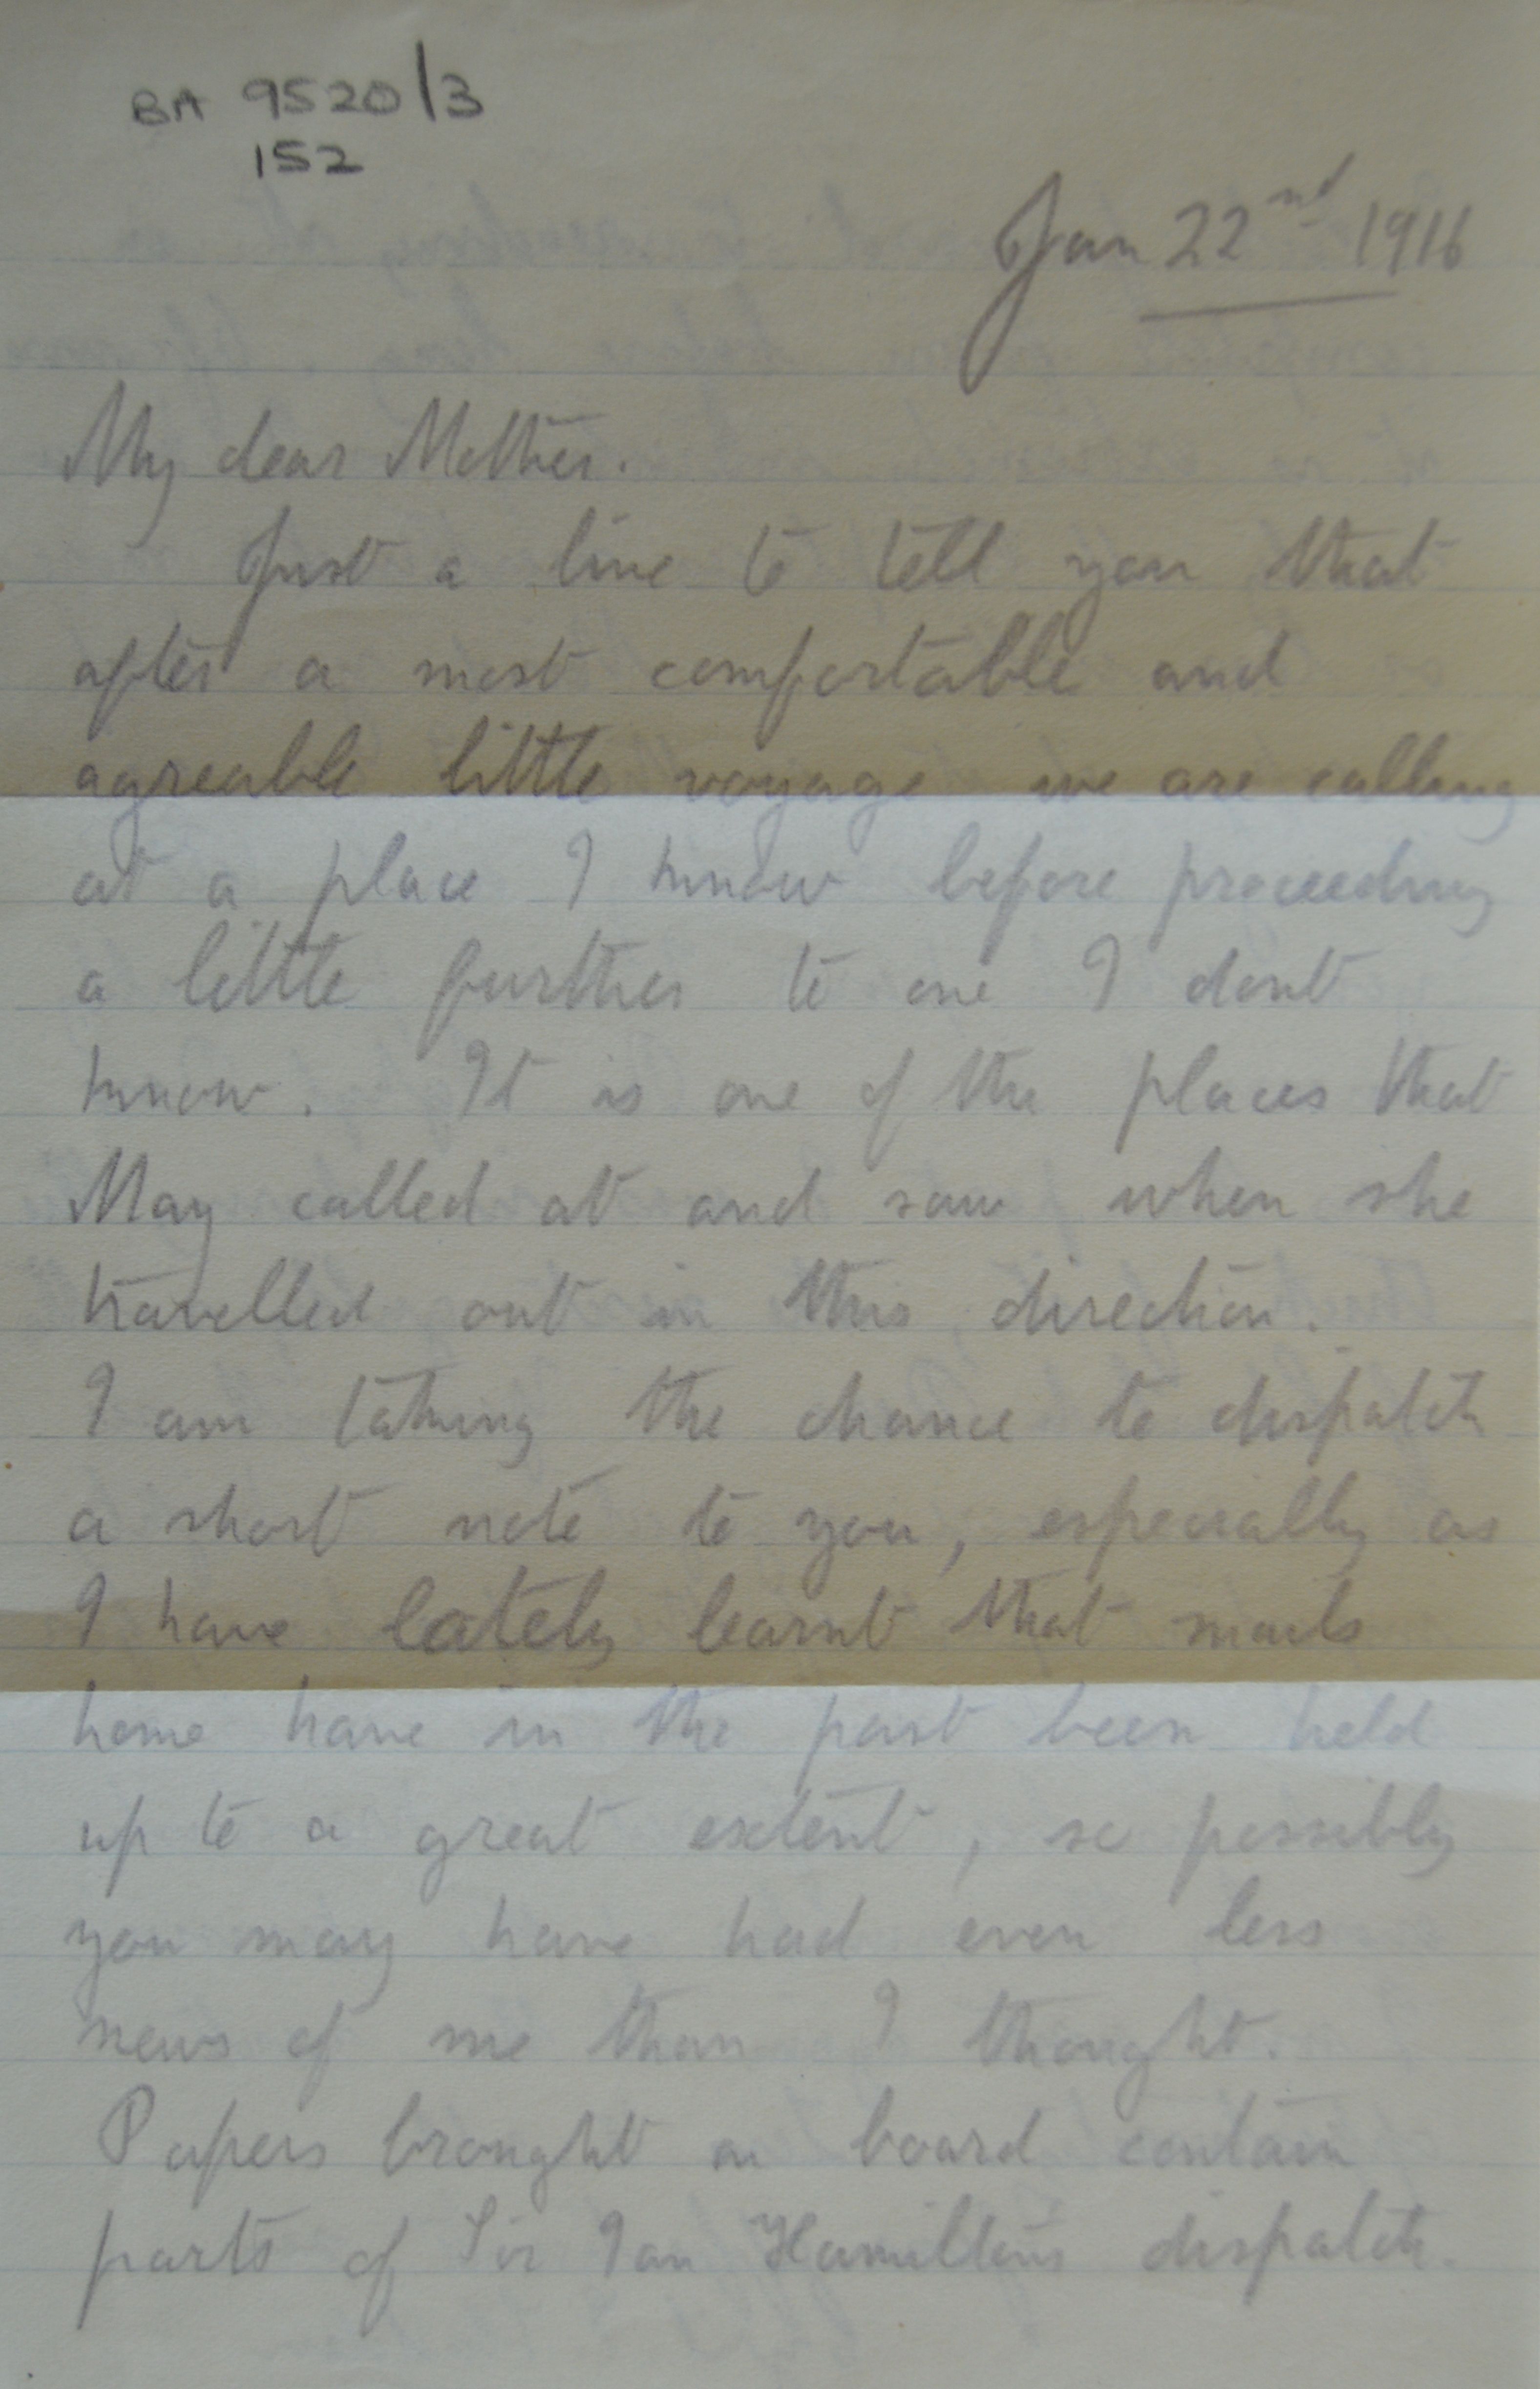 BA 9520/3
152
Jan 22nd 1916
My dear Mother.
Just a line to tell you that
after a most comfortable and
agreable little voyage we are calling
at a place I know before proceeding
a little further to one I dont
know. It is one of the places that
May called at and saw when she
travelled out in this direction.
I am taking the chance to dispatch
a short note to you, especially as
I have lately learnt that mails
home have in the past been held
up to a great extent, so possibly
you may have had even less
news of me than I thought.
Papers brought on board contain
parts of Sir Ian Hamilton's dispatch.